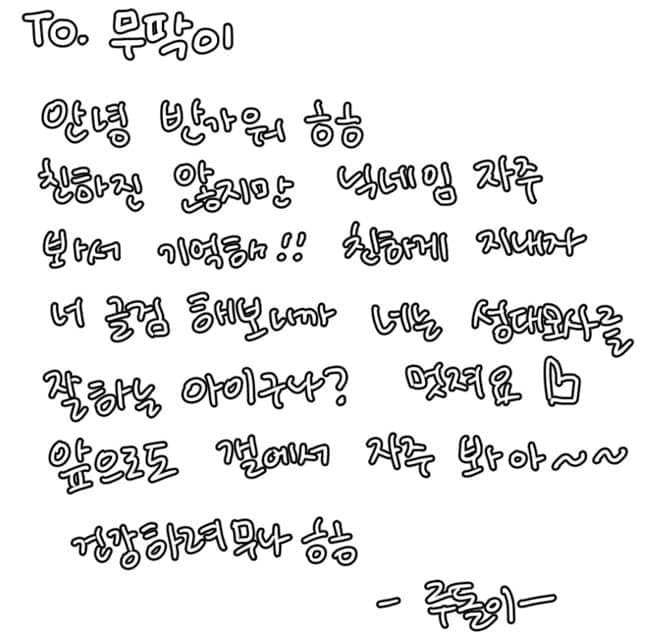 To. 무딱이
안녕 반가워 흐흐
친하진 않지만 닉네임 자주
봐서 기억해!! 친하게 지내자
너 글검 해보니까 너는 성대모사를
잘하는 아이구나? 멋져요
앞으로도 갤에서 자주 봐아~~
건강하려무나 흐흐
- 주돌이-